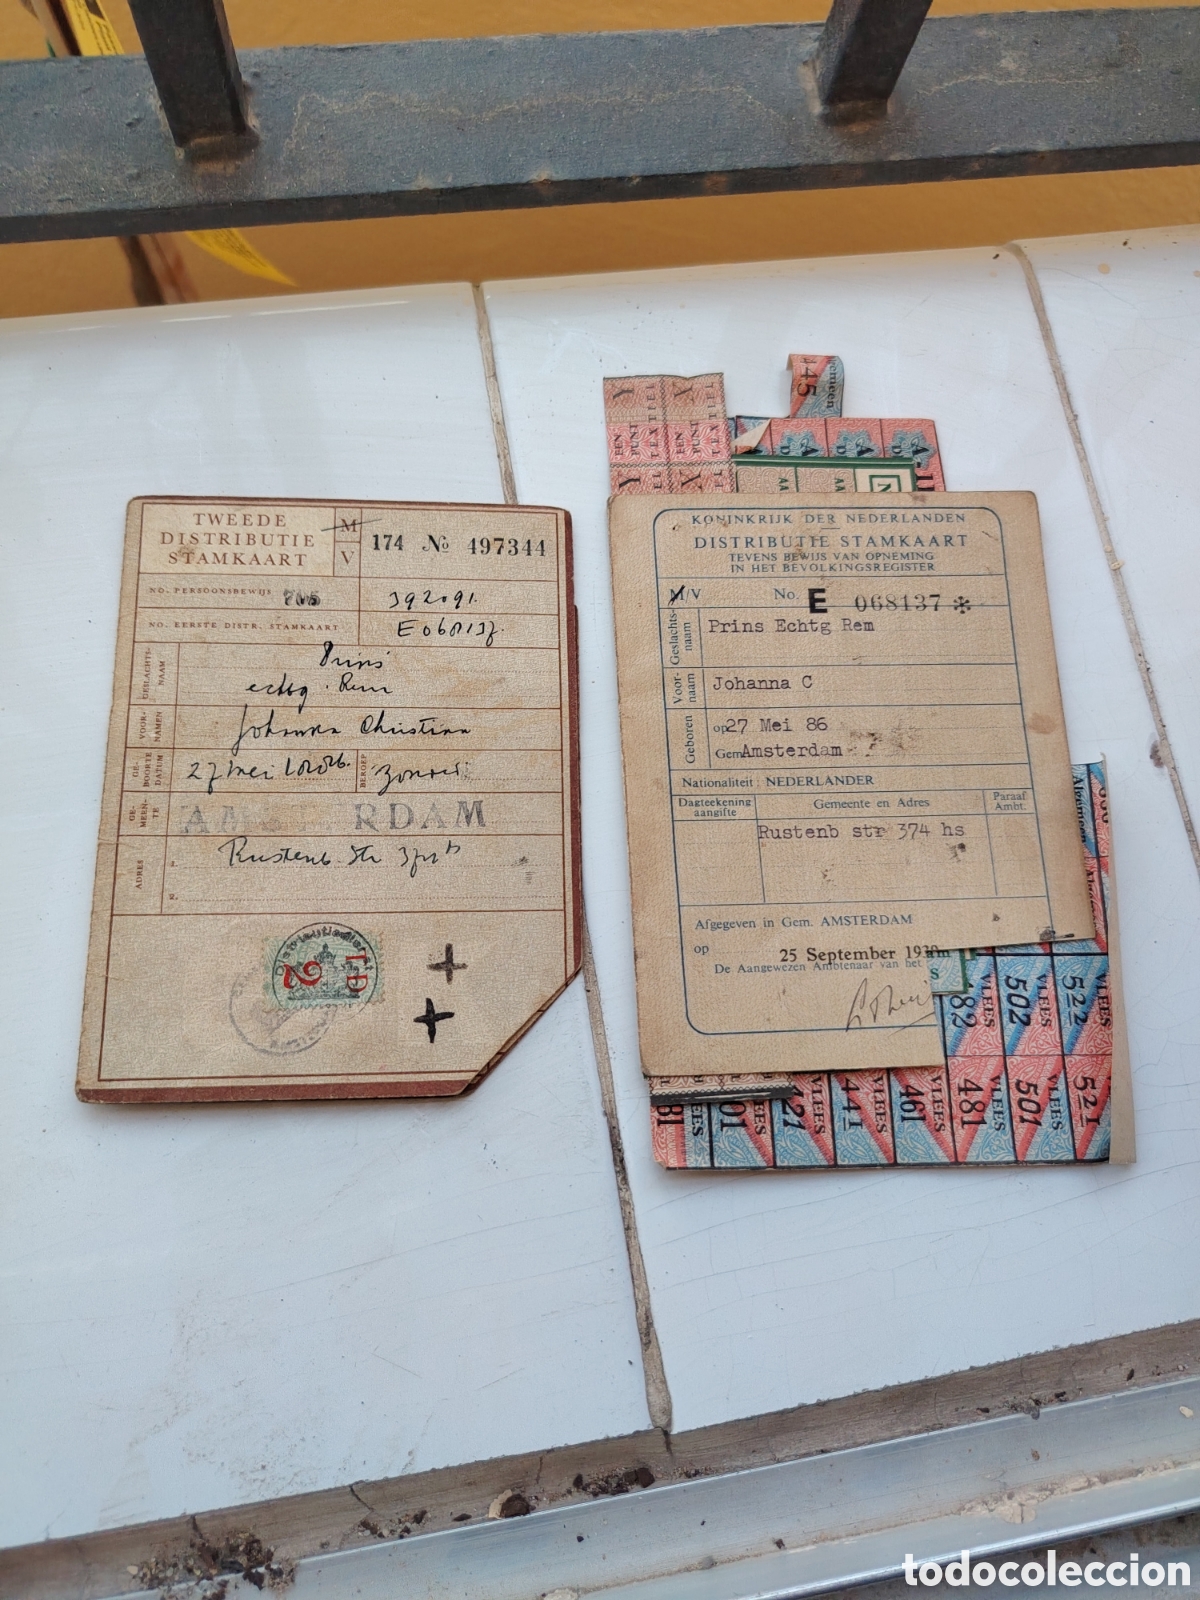 TWEEDE
DISTRIBUTIE
STAMKAART
M
V
174 No 497344
NO. PERSOONSBEWIJS
392091.
NO. EERSTE DISTR. STAMKAART
E068137.
GESLACHTS-
NAAM
Prins
echtg. Rem
VOOR-
NAMEN
Johanna Christina
GE-
BOORTE
DATUM
27 Mei
BEROEP
zonder
GE-
MEEN-
TE
AMSTERDAM
ADRES
1.
Rustenb Str
2.
2
KONINKRIJK DER NEDERLANDEN
DISTRIBUTIE STAMKAART
TEVENS BEWIJS VAN OPNEMING
IN HET BEVOLKINGSREGISTER
M/V No. E 068137 *
Geslachts-
naam
Prins Echtg Rem
Voor-
naam
Johanna C
Geboren
op 27 Mei 86
Gem. Amsterdam
Nationaliteit: NEDERLANDER
Dagteekening
aangifte
Gemeente en Adres
Paraaf
Ambt.
Rustenb str 374 hs
Afgegeven in Gem. AMSTERDAM
op 25 September 1939
De Aangewezen Ambtenaar van het
S
Y
EEN
PUNT
TEXTIEL
X
EEN
PUNT
TEXTIEL
Y
X
445
Algemeen
482
VLEES
502
VLEES
522
VLEES
421
VLEES
441
VLEES
461
VLEES
481
VLEES
501
VLEES
521
todocoleccion